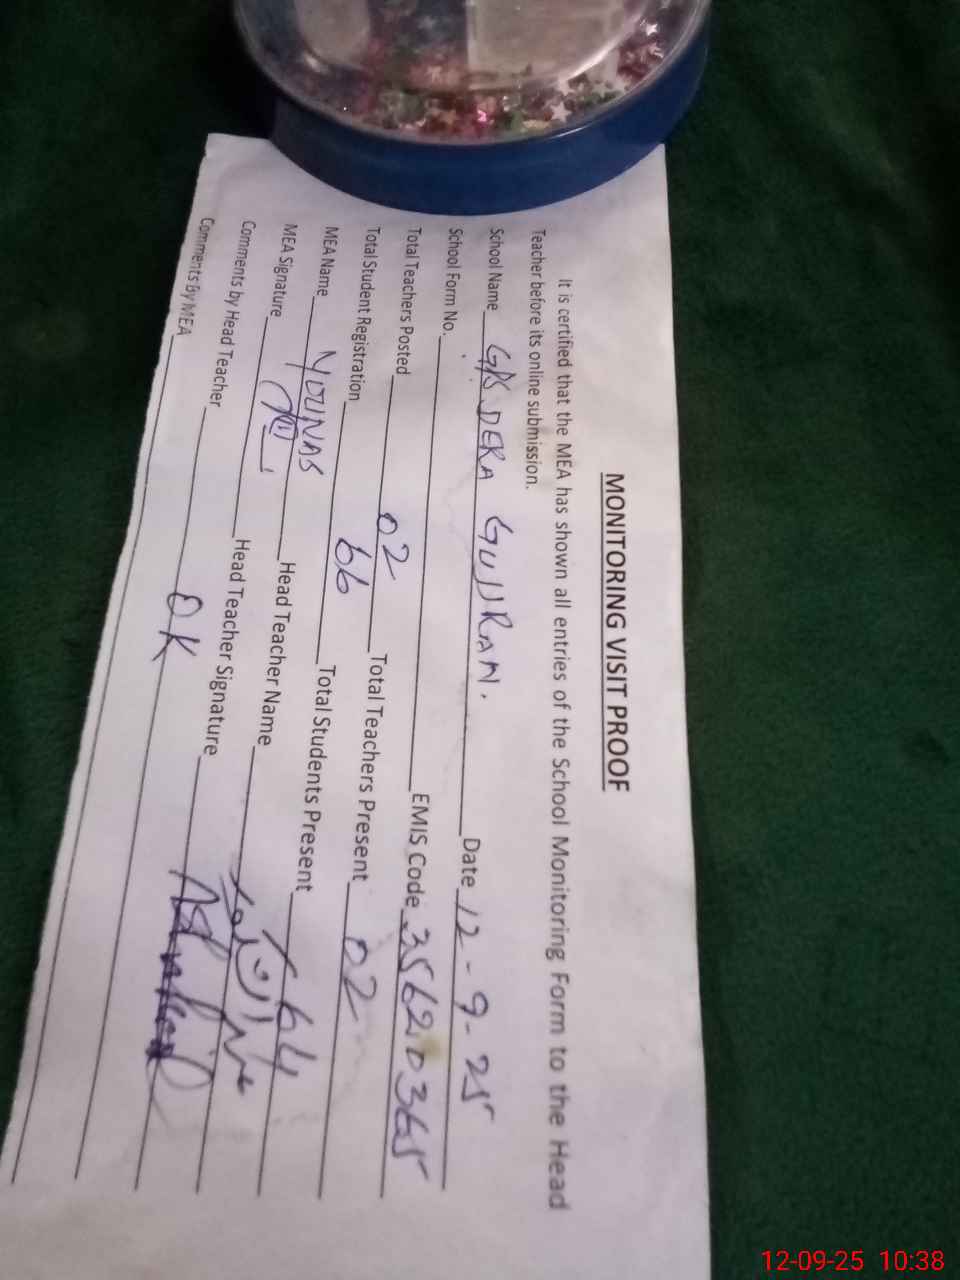 MONITORING VISIT PROOF
It is certified that the MEA has shown all entries of the School Monitoring Form to the Head
Teacher before its online submission.
School Name GPS DERA GUJJRAN. Date 12-9-25
School Form No. EMIS Code 35620365
Total Teachers Posted 02 Total Teachers Present 02
Total Student Registration 66 Total Students Present 64
MEA Name YOUNAS Head Teacher Name
MEA Signature Head Teacher Signature
Comments by Head Teacher OK
Comments By MEA
12-09-25 10:38